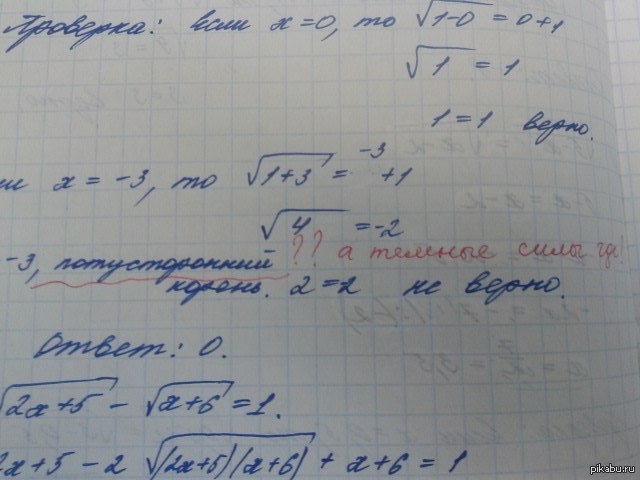 Проверка: если x=0, то √1-0 = 0+1
√1 = 1
1=1 верно.
x = -3, то √1+3 = -3+1
√4 = -2
-3, потусторонний ?? а темные силы где?
корень. 2=2 не верно.
Ответ: 0.
√2x+5 - √x+6 = 1.
2x+5 - 2 √(2x+5)(x+6) + x+6 = 1
pikabu.ru